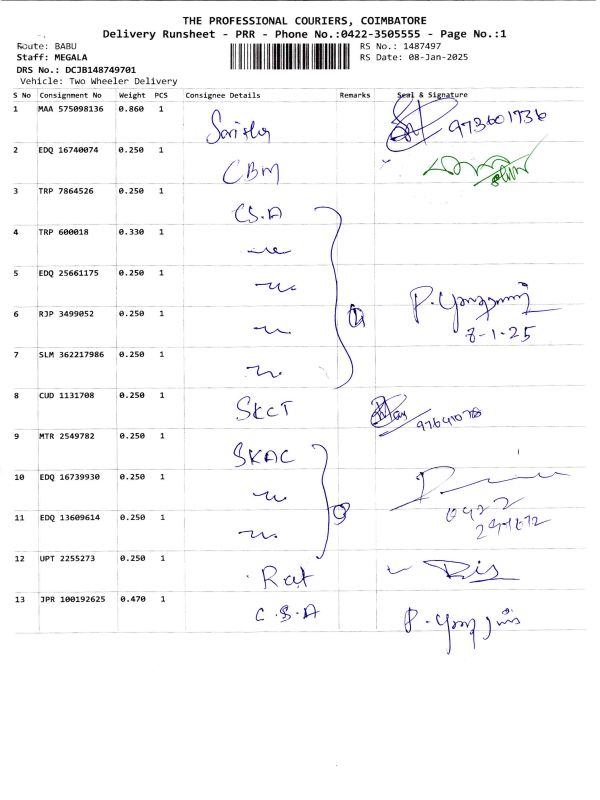 THE PROFESSIONAL COURIERS, COIMBATORE
Delivery Runsheet - PRR - Phone No.:0422-3505555 - Page No.:1
Route: BABU RS No.: 1487497
Staff: MEGALA RS Date: 08-Jan-2025
DRS No.: DCJB148749701
Vehicle: Two Wheeler Delivery
S No Consignment No Weight PCS Consignee Details Remarks Seal & Signature
1 MAA 575098136 0.860 1
2 EDQ 16740074 0.250 1 CBM
3 TRP 7864526 0.250 1 C.S.A
4 TRP 600018 0.330 1
5 EDQ 25661175 0.250 1
6 RJP 3499052 0.250 1
8-1-25
7 SLM 362217986 0.250 1
8 CUD 1131708 0.250 1 SKCT
9 MTR 2549782 0.250 1 SKAC
10 EDQ 16739930 0.250 1
0422
11 EDQ 13609614 0.250 1
12 UPT 2255273 0.250 1
13 JPR 100192625 0.470 1 C.S.A